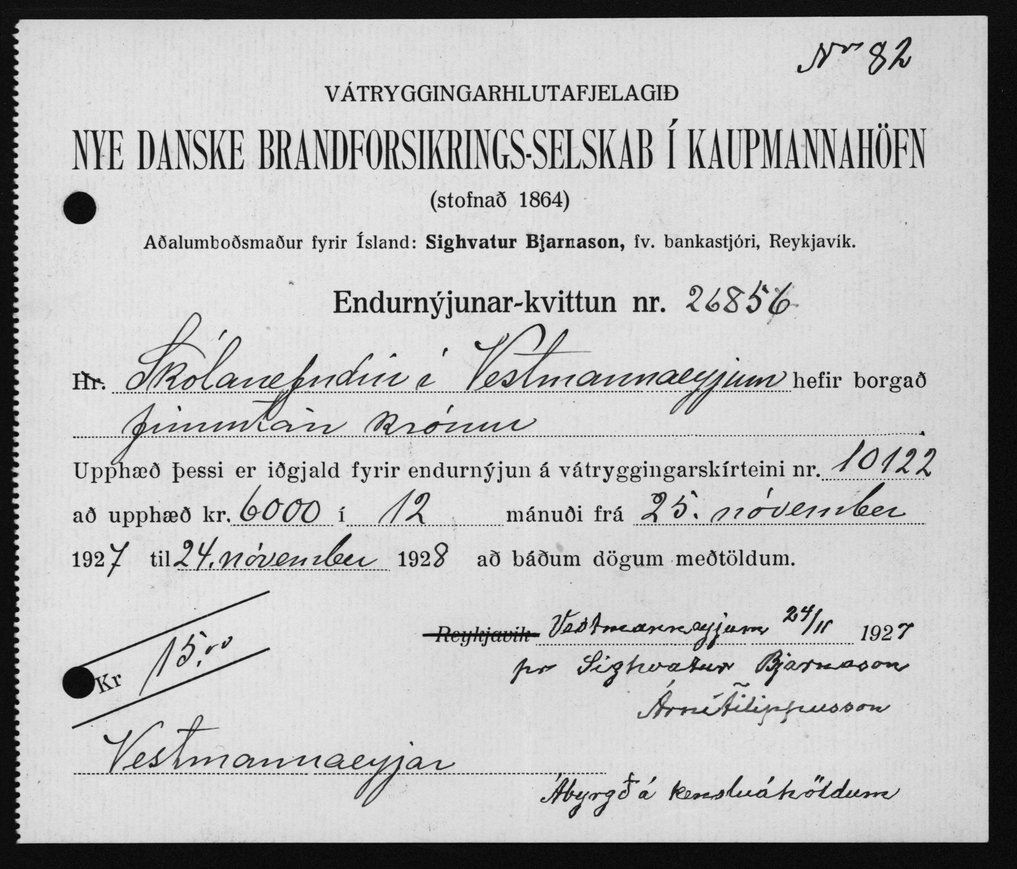 Nr 82
VÁTRYGGINGARHLUTAFJELAGIÐ
NYE DANSKE BRANDFORSIKRINGS-SELSKAB Í KAUPMANNAHÖFN
(stofnað 1864)
Aðalumboðsmaður fyrir Ísland: Sighvatur Bjarnason, fv. bankastjóri, Reykjavík.
Endurnýjunar-kvittun nr. 26856
Hr. Skólanefndin í Vestmannaeyjum hefir borgað
fimmtán krónur
Upphæð þessi er iðgjald fyrir endurnýjun á vátryggingarskírteini nr. 10122
að upphæð kr. 6000 í 12 mánuði frá 25. nóvember
1927 til 24. nóvember 1928 að báðum dögum meðtöldum.
Reykjavík Vestmannaeyjum 24/11 1927
Kr 15.00
pr Sighvatur Bjarnason
Árni Filippusson
Vestmannaeyjar
Ábyrgð á kensluáhöldum